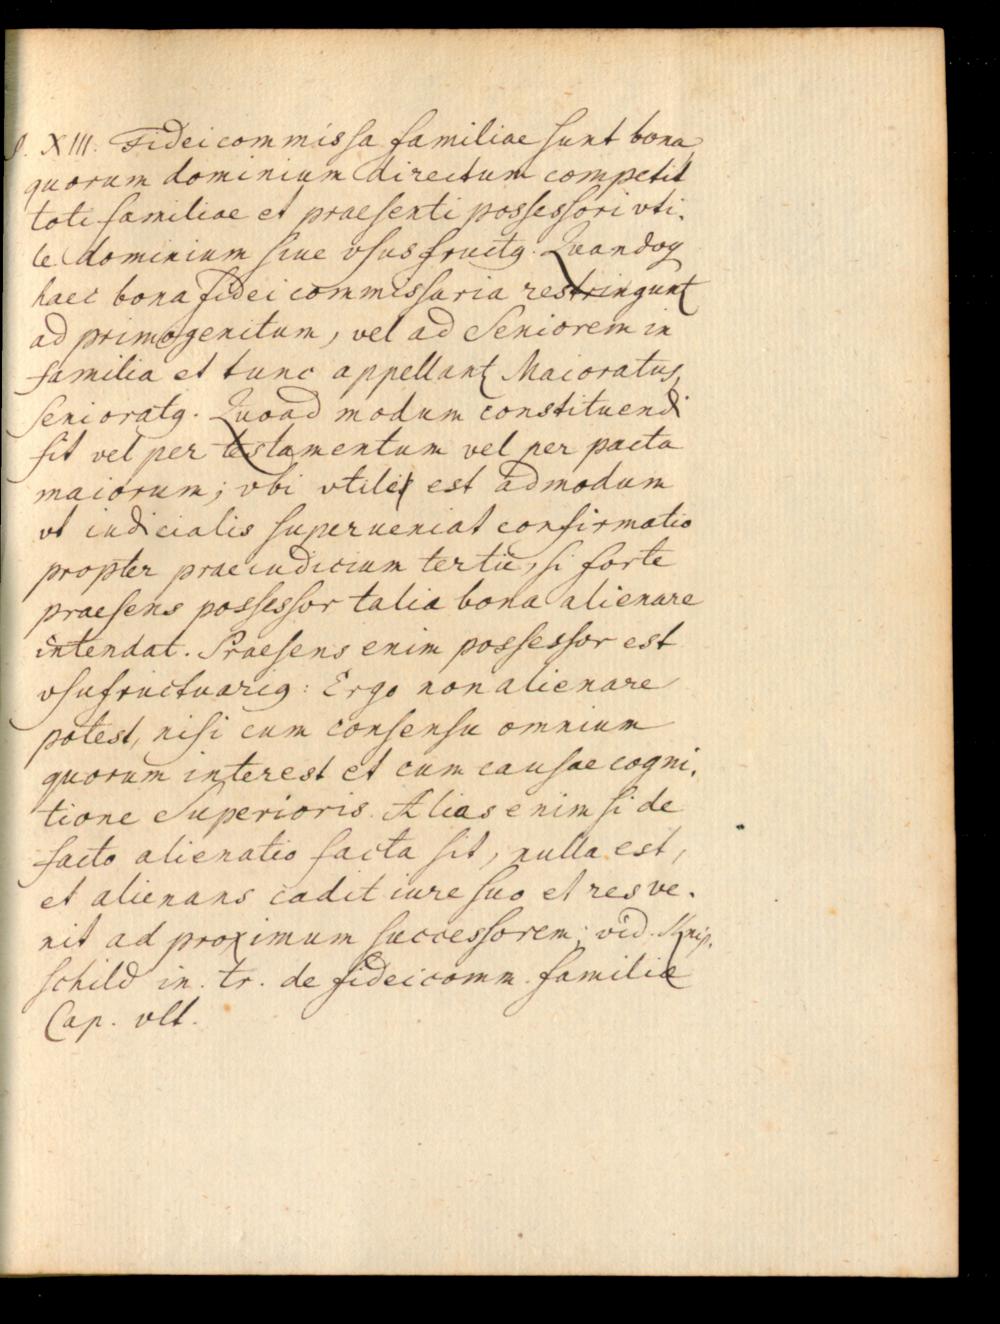 §. XIII. Fideicommissa familiae sunt bona,
quorum dominium directum competit
toti familiae et praesenti possessori vti-
le dominium siue vsusfructꝰ. Quandoqꝫ
haec bona fideicommissaria restringunt
ad primogenitum, vel ad Seniorem in
familia et tunc appellant Maioratus,
Senioratꝰ. Quoad modum constituendi
fit vel per testamentum vel per pacta
maiorum; vbi vtile est admodum
vt iudicialis superueniat confirmatio
propter praeiudicium tertii, si forte
praesens possessor talia bona alienare
intendat. Praesens enim possessor est
vsufructuariꝰ: Ergo non alienare
potest, nisi cum consensu omnium
quorum interest et cum causae cogni-
tione Superioris. Alias enim si de
facto alienatio facta sit, nulla est,
et alienans cadit iure suo et res ve-
nit ad proximum successorem; vid. Knip-
schild in. tr. de fideicomm. familiae
Cap. vlt.